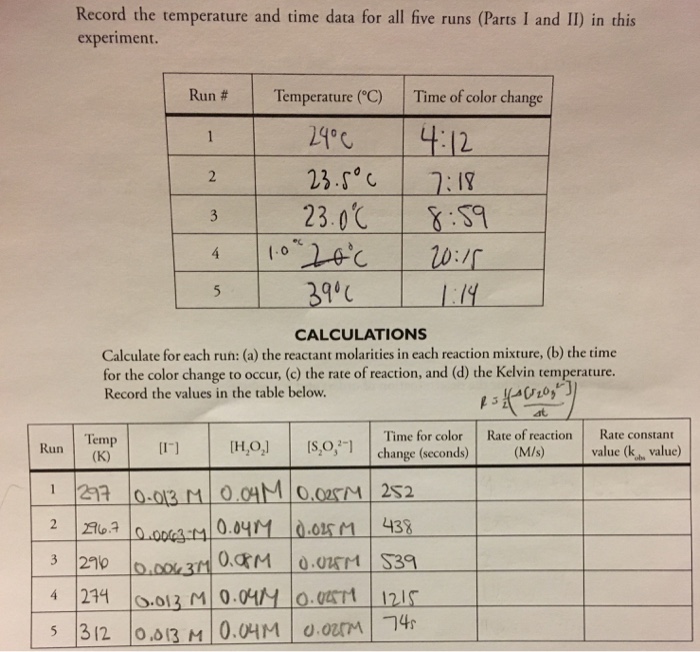 Record the temperature and time data for all five runs (Parts I and II) in this
experiment.
Run # Temperature (°C) Time of color change
1 24°C 4:12
2 23.5°C 7:18
3 23.0°C 8:59
4 1.0°C 20°C 20:15
5 39°C 1:14
CALCULATIONS
Calculate for each run: (a) the reactant molarities in each reaction mixture, (b) the time
for the color change to occur, (c) the rate of reaction, and (d) the Kelvin temperature.
Record the values in the table below.
Run Temp (K) [I⁻] [H₂O₂] [S₂O₃²⁻] Time for color change (seconds) Rate of reaction (M/s) Rate constant value (kobs value)
1 297 0.013 M 0.04M 0.025M 252
2 296.7 0.0063 M 0.04M 0.025 M 438
3 296 0.0063M 0.08M 0.025M 539
4 274 0.013 M 0.04M 0.025M 1215
5 312 0.013 M 0.04M 0.025M 74s